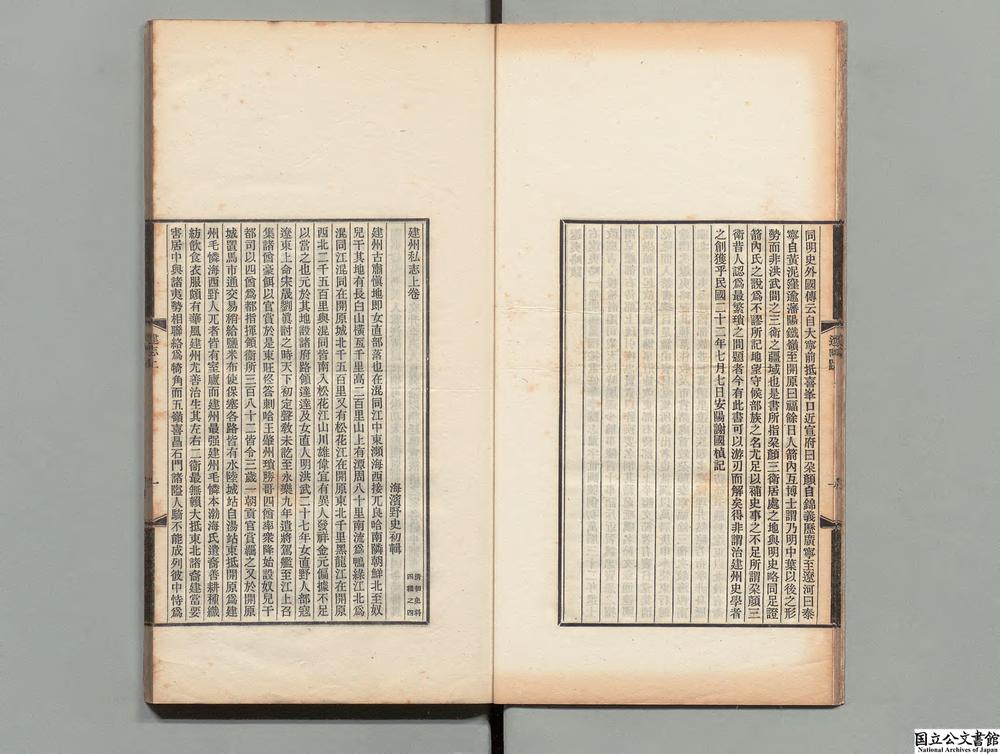 同明史外國傳云自大寧前抵喜峯口近宣府曰朶顏自錦義歷廣寧至遼河曰泰
寧自黃泥窪逾瀋陽鐵嶺至開原曰福餘日人箭內亙博士謂乃明中葉以後之形
勢而非洪武間之三衛之疆域也是書所指朶顏三衛居處之地與明史略同足證
箭內氏之說爲不謬所記地望守候部族之名尤足以補史事之不足所謂朶顏三
衛昔人認爲最繁瑣之問題者今有此書可以游刃而解矣得非謂治建州史學者
之創獲乎民國二十二年七月七日安陽謝國楨記
建州私志上卷
清初史料四種之四
海濱野史初輯
建州古肅愼地即女直部落也在混同江中東瀕海西接兀良哈南隣朝鮮北至奴
兒干其地有長白山橫亙千里高二百里山上有潭周八十里南流爲鴨綠江北爲
混同江混同在開原城北千五百里又有松花江在開原東北千里黑龍江在開原
西北二千五百里與混同皆南入松花江山川雄偉宜有異人發祥金元偏據不足
以當之也元於其地設諸府路領達達及女直人明洪武二十七年女直野人部寇
遼東上命宋晟劉眞討之時天下初定聲敎未訖至永樂九年遣將駕艦至江上召
集諸酋豪餌以官賞於是東旺佟答剌哈王肇州瑣勝哥四酋率衆降始設奴兒干
都司以四酋爲都指揮領衛所三百八十二皆令三歲一朝貢官賞羈之又於開原
城置馬市通交易稍給鹽米布使保塞各路皆有水陸城站自湯站東抵開原爲建
州毛憐海西野人兀者皆有室廬而建州最强建州毛憐本渤海氏遺裔善耕種織
紡飲食衣服頗有華風建州尤善治生其左右二衛最無賴大抵東北諸裔建當要
害居中與諸夷勢相聯絡爲犄角而五嶺喜昌石門諸隘人騎不能成列彼中恃爲
国立公文書館
National Archives of Japan